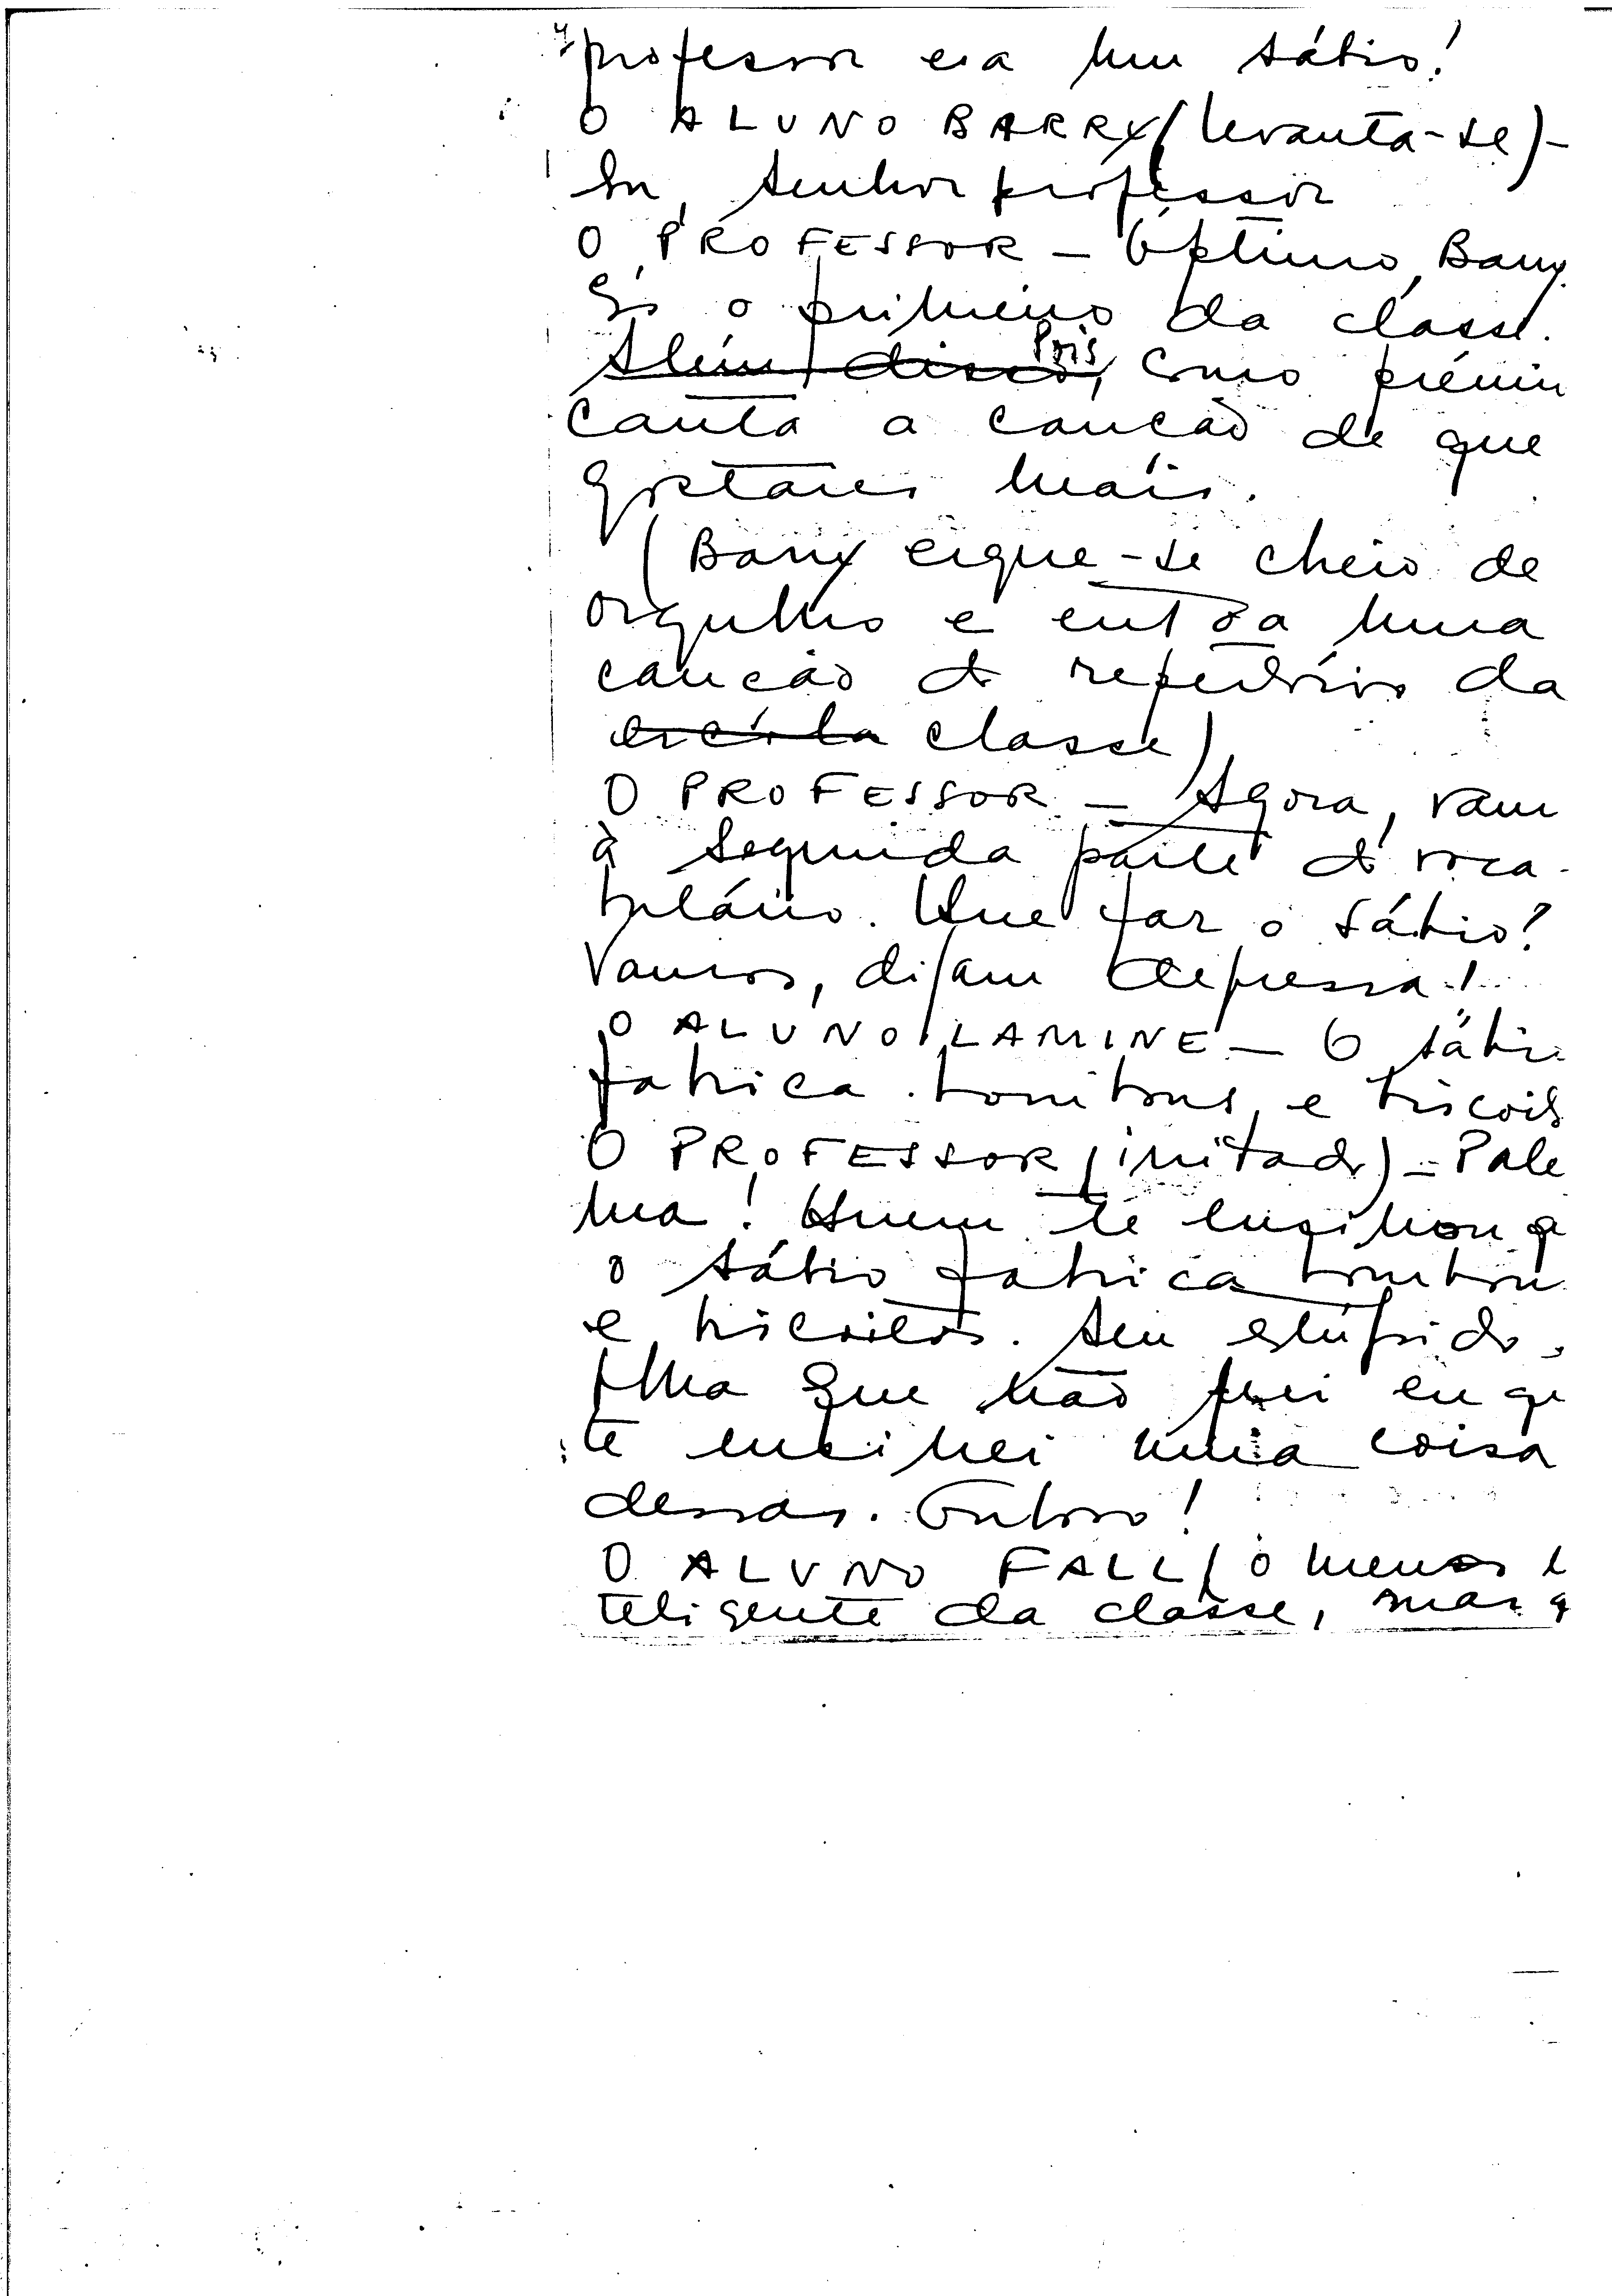 professor era um sábio!
O ALUNO BARRY (levanta-se) -
Eu, senhor professor
O PROFESSOR - Óptimo, Barry.
És o primeiro da classe.
Além disso, Pois, como prémio
canta a canção de que
gostares mais.
(Barry ergue-se cheio de
orgulho e entoa uma
canção do repertório da
escola classe)
O PROFESSOR - Agora, vam
à segunda parte do voca-
bulário. Que faz o sábio?
Vamos, digam depressa!
O ALUNO LAMINE - O sábio
fabrica bombons e biscoit
O PROFESSOR (irritado) - Pale
ma! Quem te ensinou q
o sábio fabrica bombon
e biscoitos. Seu estúpido,
olha que não fui eu q
te ensinei uma coisa
dessas. Outro!
O ALUNO FALL (o menos i
teligente da classe, mas q